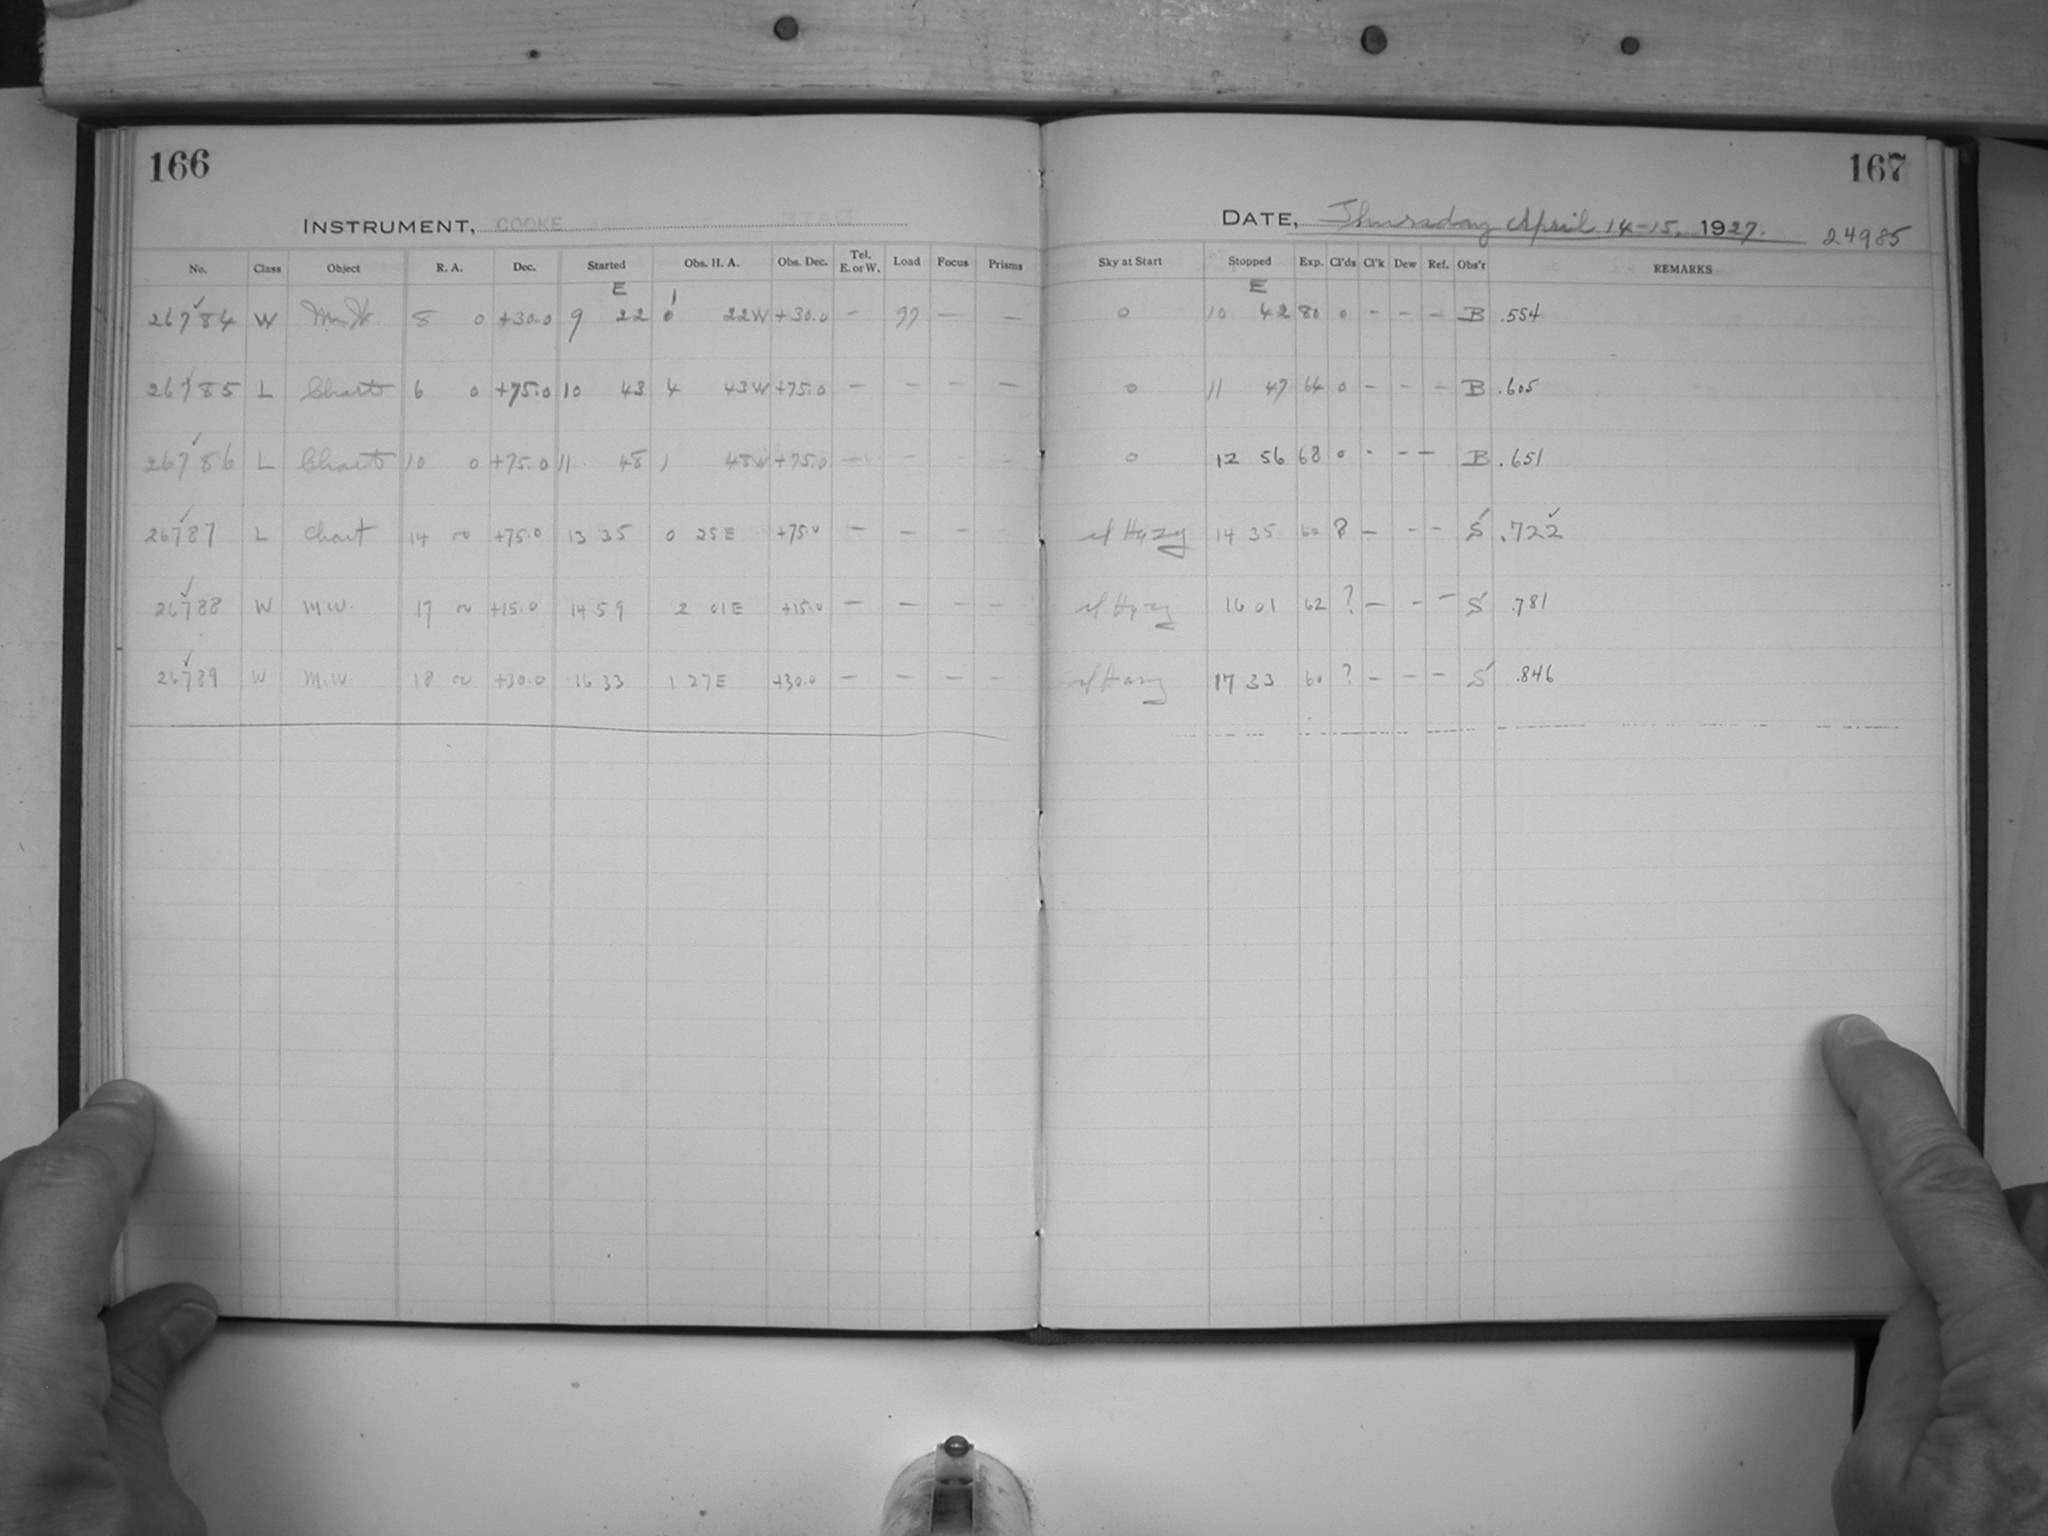 166
INSTRUMENT, COOKE
No. Class Object R. A. Dec. Started Obs. H. A. Obs. Dec. Tel. E. or W. Load Focus Prisms
E 1
26784 W M.W. 8 0 +30.0 9 22 0 22W +30.0 — — —
26785 L Chart 6 0 +75.0 10 43 4 43W +75.0 — — — —
26786 L Chart 10 0 +75.0 11 48 1 48W +75.0 — — — —
26787 L Chart 14 00 +75.0 13 35 0 25E +75.0 — — — —
26788 W M.W. 17 00 +15.0 14 59 2 01E +15.0 — — — —
26789 W M.W. 18 00 +30.0 16 33 1 27E +30.0 — — — —
167
DATE, Thursday April 14-15, 1927. 24985
Sky at Start Stopped Exp. Cl'ds Cl'k Dew Ref. Obs'r REMARKS
E
0 10 42 80 0 - - - B .554
0 11 47 64 0 - - - B .605
0 12 56 68 0 - - - B .651
sl Hazy 14 35 60 ? — - - S .722
sl Hazy 16 01 62 ? — - - S .781
sl Hazy 17 33 60 ? - - - S .846